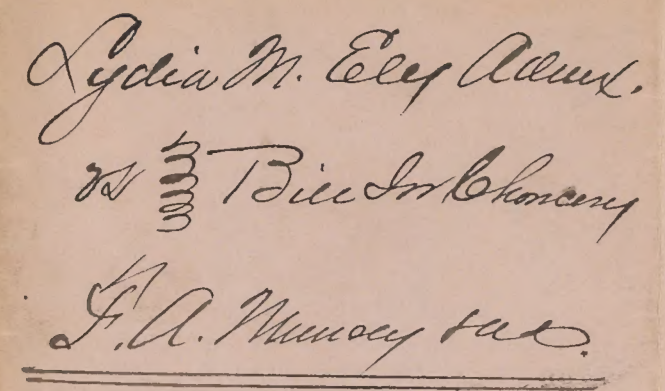 Lydia M. Ely Admx.
vs Bill In Chancery
F. A. Munsey et als.